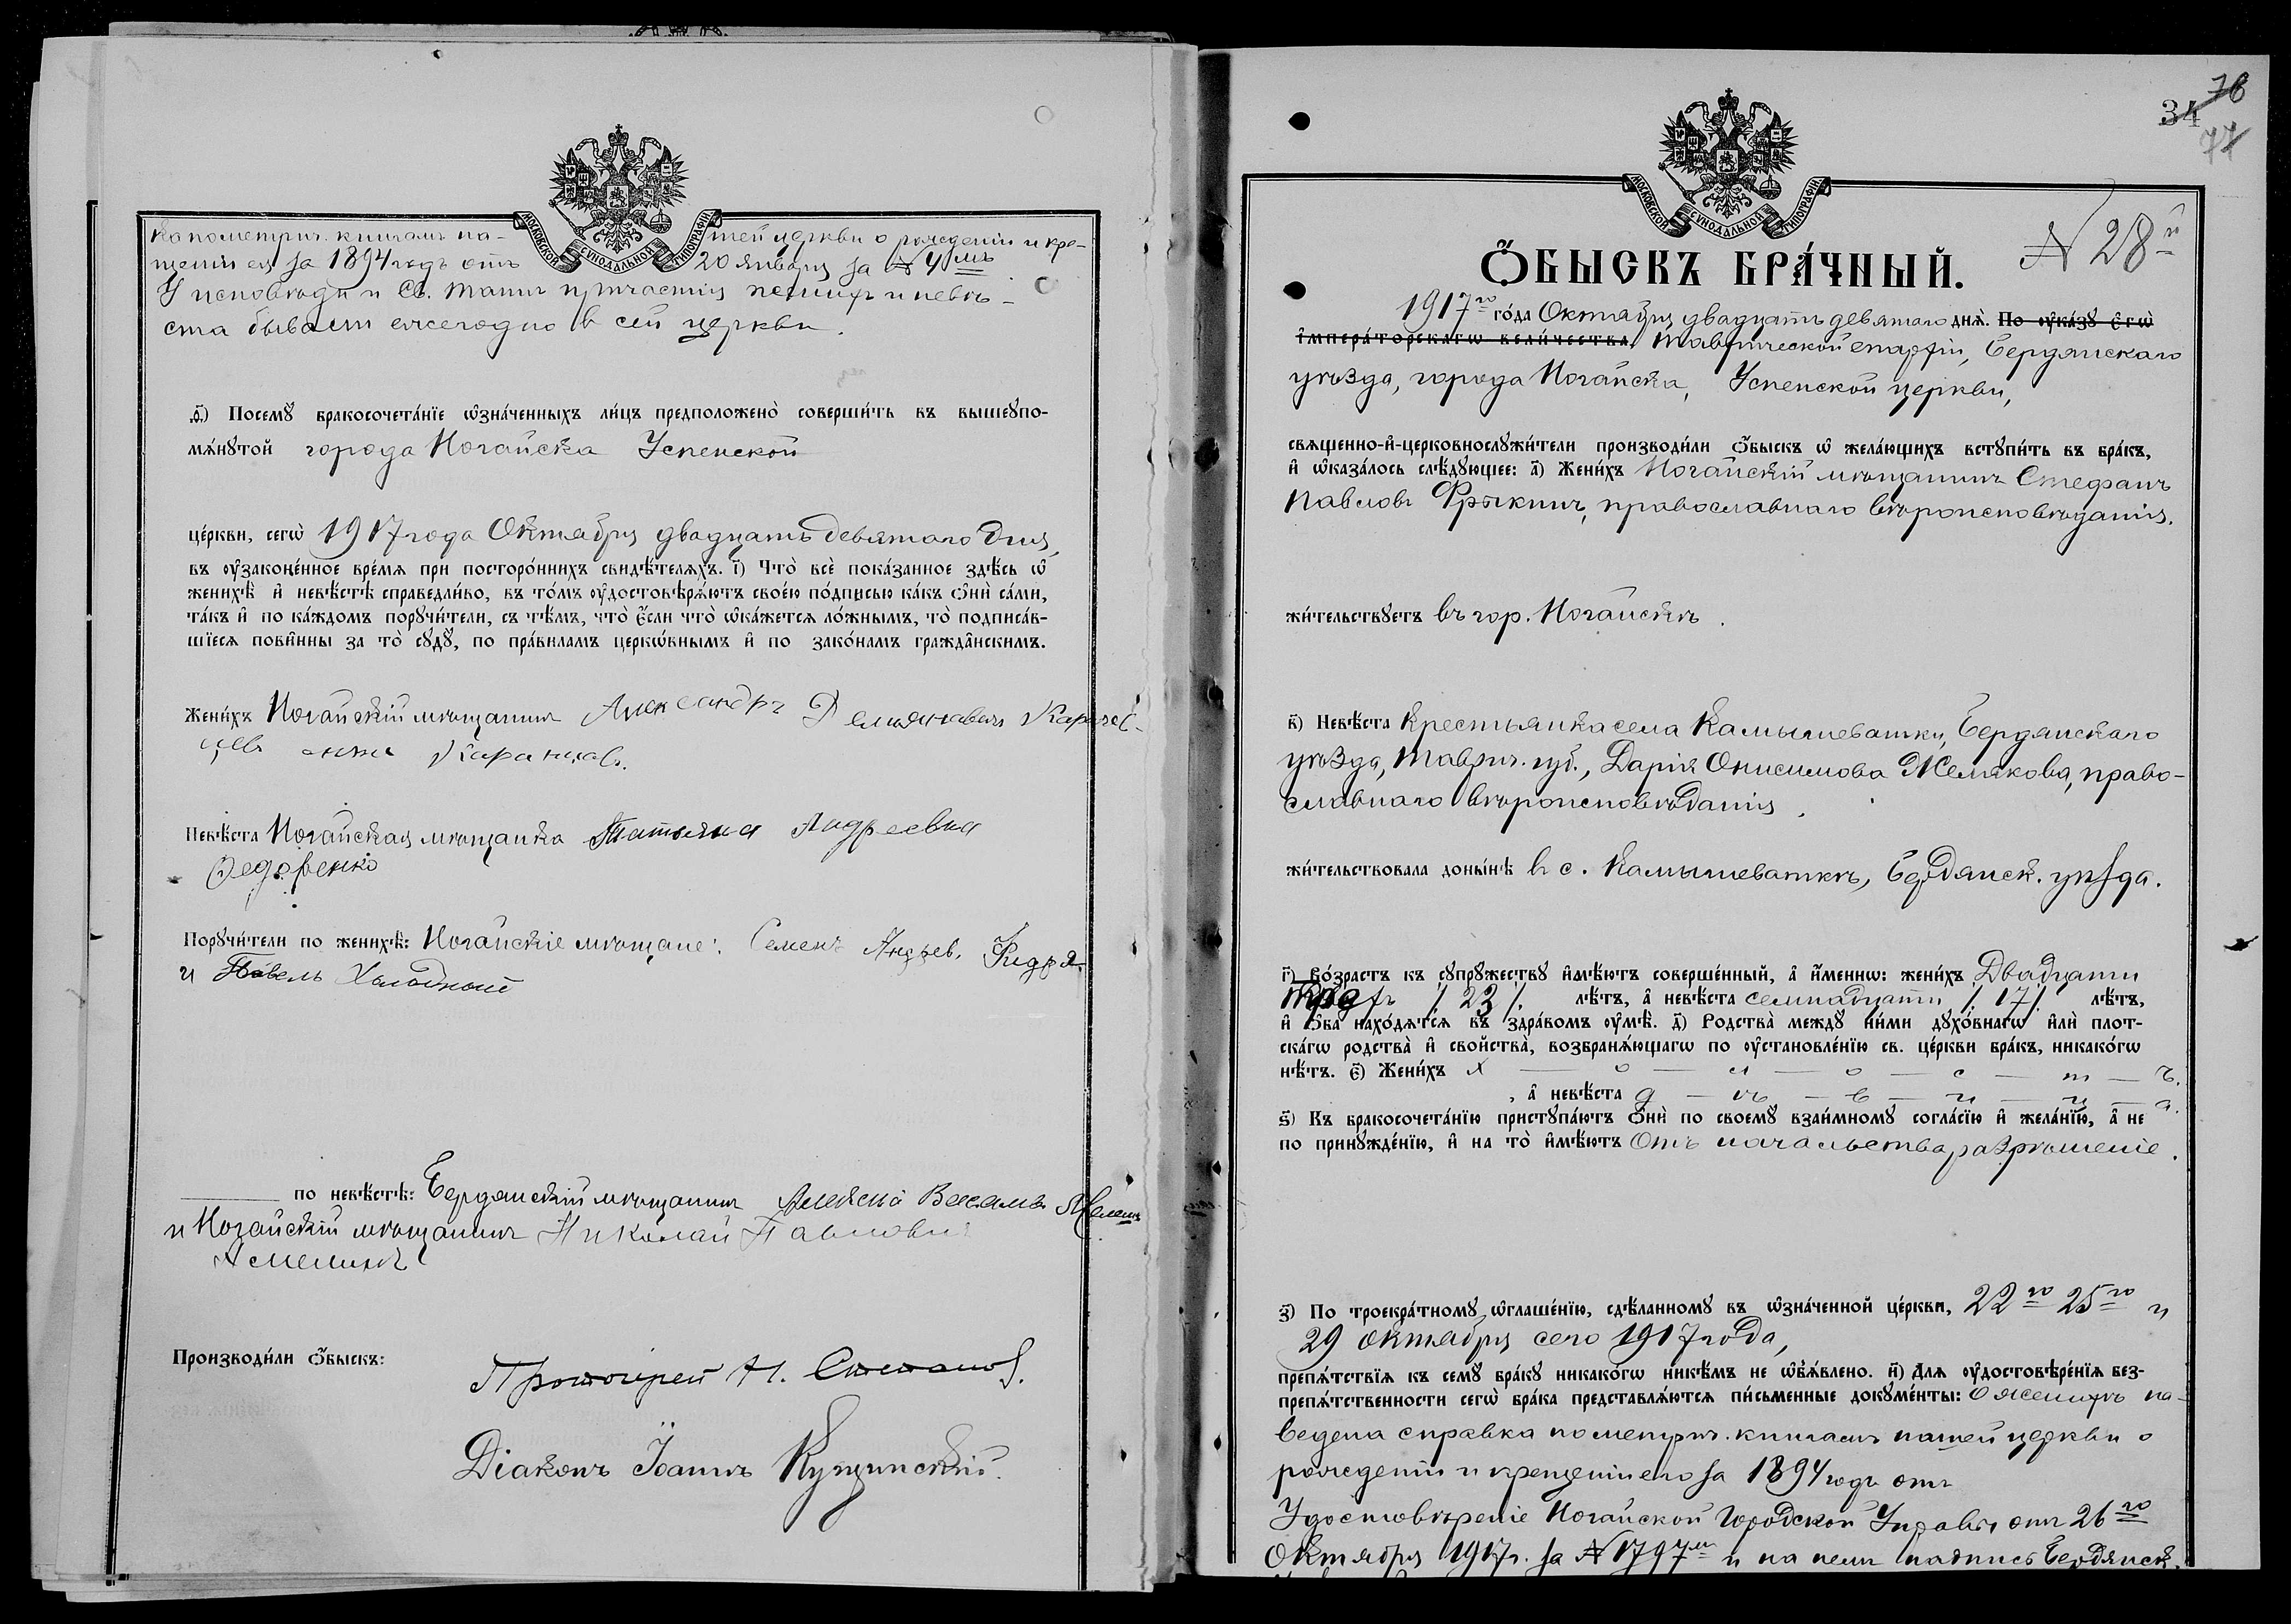 МОСКОВСКОЙ СУНОДАЛЬНОЙ ТИПОГРАФІИ
по метрич. книгамъ на- шей церкви о рожденіи и кре-
щеніи ея за 1894 годъ отъ 20 января за № 4мъ
У исповѣди и Св. Таинъ причастія женихъ и невѣ-
ста бывали ежегодно въ сей церкви.
д҃і) Посемꙋ̀ бракосочета́нїе ѡ҆зна́ченныхъ ли́цъ предположено̀ соверши́ть въ вышеꙋпо-
мѧ́нꙋтой города Ногайска Успенской
це́ркви, сегѡ̀ 1917 года Октября двадцать девятаго дня,
въ ᲂу҆законе́нное вре́мѧ при посторо́ннихъ свидѣ́телѧхъ. і҃) Что̀ всѐ пока́занное здѣ́сь ѡ҆
женихѣ̀ и҆ невѣ́стѣ справедли́во, въ то́мъ ᲂу҆достовѣрѧ́ютъ свое́ю по́дписью ка́къ ѻ҆нѝ са́ми,
та́къ и҆ по ка́ждомъ порꙋчи́тели, съ тѣ́мъ, что̀ є҆́сли что̀ ѡ҆ка́жетсѧ ло́жнымъ, то̀ подписа́в-
шїесѧ пови́нны за то̀ сꙋдꙋ̀, по пра́виламъ церко́внымъ и҆ по зако́намъ гражда́нскимъ.
Жени́хъ Ногайскій мѣщанинъ Александръ Демьяновичъ
Невѣ́ста Ногайская мѣщанка Татьяна Андреевна
Федоренко
Порꙋчи́тели по женихѣ̀: Ногайскіе мѣщане: Семенъ Андрев.
и Павелъ Холодный
по невѣ́стѣ: Бердянскій мѣщанинъ Алексѣй
и Ногайскій мѣщанинъ Николай Павловичъ
Амелинъ
Производи́ли ѻ҆́быскъ:
Протоіерей Н. Степановъ.
Діаконъ Іоаннъ Кущинскій.
76
34
77
МОСКОВСКОЙ СУНОДАЛЬНОЙ ТИПОГРАФІИ
№ 28й
Ѻ҆́БЫСКЪ БРА́ЧНЫЙ.
1917го го́да Октября двадцать девятаго днѧ̀. По ᲂу҆ка́зꙋ є҆гѡ̀
і҆мпера́торскагѡ вели́чества, Таврической епархіи, Бердянскаго
уѣзда, города Ногайска, Успенской церкви,
свѧщенно-и҆-церковнослꙋжи́тели производи́ли ѻ҆́быскъ ѡ҆ жела́ющихъ встꙋпи́ть въ бра́къ,
и҆ ѡ҆каза́лось слѣ́дꙋющее: а҃) Жени́хъ Ногайскій мѣщанинъ Стефанъ
Павловъ Фрыкинъ, православнаго вѣроисповѣданія.
жи́тельствꙋетъ въ гор. Ногайскѣ.
в҃) Невѣ́ста Крестьянка села Камышеватки, Бердянскаго
уѣзда, Таврич. губ., Дарія Онисимова Желякова, право-
славнаго вѣроисповѣданія.
жи́тельствовала доны́нѣ в с. Камышеваткѣ, Бердянск. уѣзда.
г҃) Во́зрастъ къ сꙋпрꙋ́жествꙋ и҆мѣ́ютъ соверше́нный, а҆ и҆́менно: жени́хъ Двадцати
трехъ /23/ лѣ́тъ, а҆ невѣ́ста семнадцати /17/ лѣ́тъ,
и҆ ѻ҆́ба нахо́дѧтсѧ въ здра́вомъ ᲂу҆мѣ̀. д҃) Родства̀ междꙋ̀ ни́ми дꙋхо́внагѡ и҆лѝ плот-
ска́гѡ родства̀ и҆ свойства̀, возбранѧ́ющагѡ по ᲂу҆становле́нїю св. це́ркви бра́къ, никако́гѡ
нѣ́тъ. є҃) Жени́хъ х — о — л — о — с — т — ъ.
, а҆ невѣ́ста д — ѣ — в — и — ц — а.
ѕ҃) Къ бракосочета́нїю пристꙋпа́ютъ ѻ҆нѝ по своемꙋ̀ взаи́мномꙋ согла́сїю и҆ жела́нїю, а҆ не
по принꙋжде́нїю, и҆ на то̀ и҆мѣ́ютъ отъ начальства разрѣшеніе.
з҃) По троекра́тномꙋ ѡ҆глаше́нїю, сдѣ́ланномꙋ въ ѡ҆зна́ченной це́ркви, 22го 25го и
29 октября сего 1917 года,
препѧ́тствїѧ къ семꙋ̀ бра́кꙋ никако́гѡ никѣ́мъ не ѡ҆б̾ѧ́влено. и҃) Длѧ ᲂу҆достовѣре́нїѧ без-
препѧ́тственности сегѡ̀ бра́ка представлѧ́ютсѧ пи́сьменные докꙋме́нты: О женихѣ на-
ведена справка по метрич. книгамъ нашей церкви о
рожденіи и крещеніи его за 1894 годъ отъ
Удостовѣреніе Ногайской Городской Управы отъ 26го
Октября 1917 г. за № 1797мъ и на немъ надпись Бердянск.